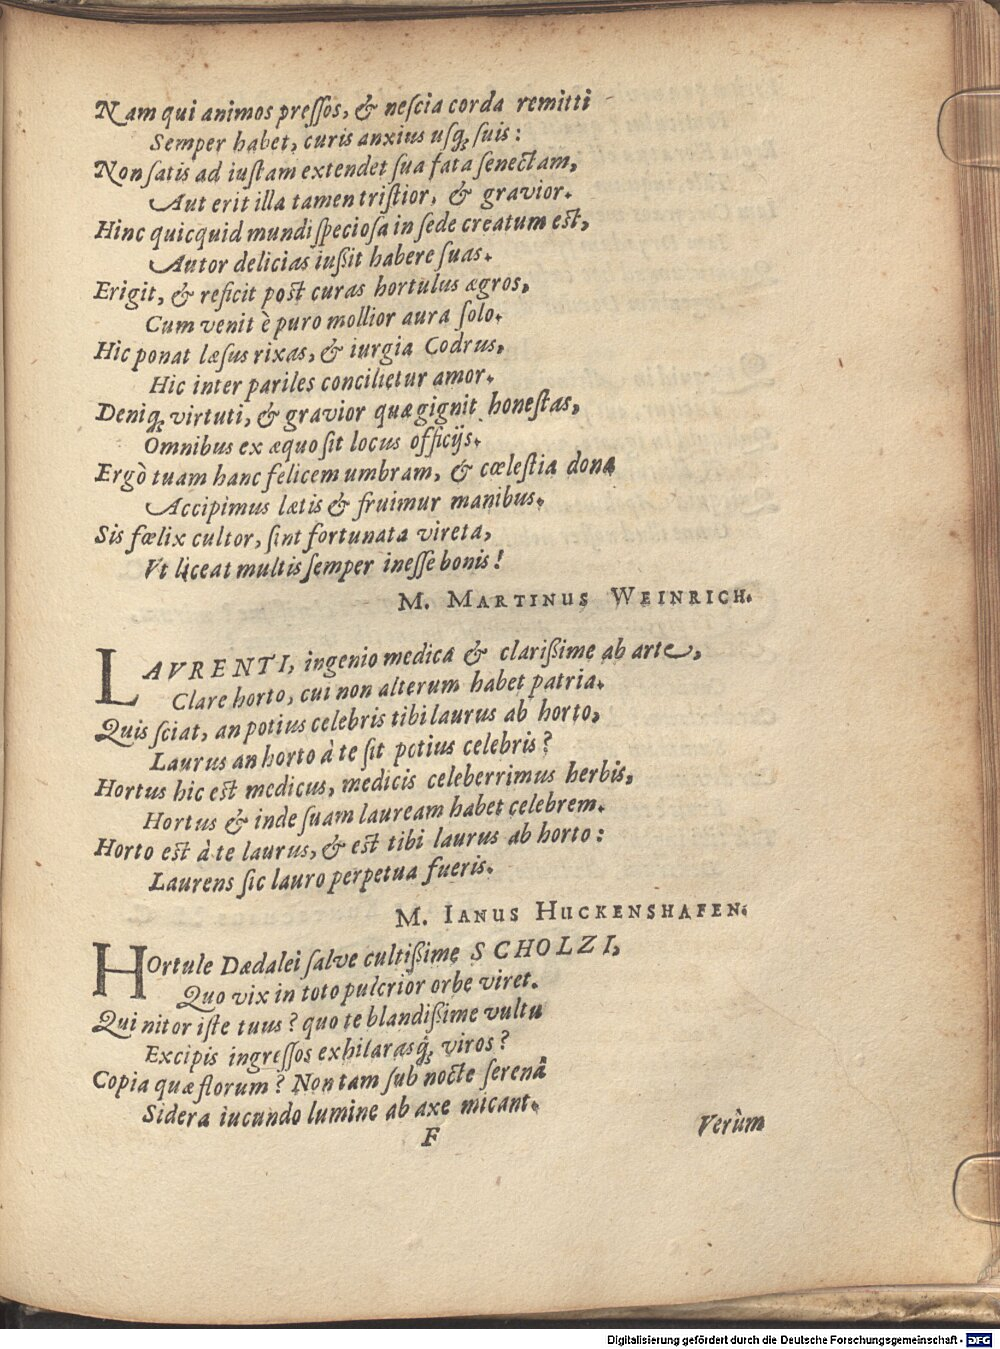 Nam qui animos preſſos, & neſcia corda remitti
Semper habet, curis anxius uſq; ſuis:
Non ſatis ad iuſtam extendet ſua fata ſenectam,
Aut erit illa tamen triſtior, & gravior.
Hinc quicquid mundi ſpecioſa in ſede creatum eſt,
Autor delicias iußit habere ſuas.
Erigit, & reficit poſt curas hortulus ægros,
Cum venit è puro mollior aura ſolo.
Hic ponat læſus rixas, & iurgia Codrus,
Hic inter pariles concilietur amor.
Deniq; virtuti, & gravior quæ gignit honeſtas,
Omnibus ex æquo ſit locus officijs.
Ergò tuam hanc felicem umbram, & cœleſtia dona
Accipimus lætis & fruimur manibus.
Sis fœlix cultor, ſint fortunata vireta,
Vt liceat multis ſemper ineſſe bonis!
M. MARTINUS WEINRICH.
LAVRENTI, ingenio medica & clarißime ab arte,
Clare horto, cui non alterum habet patria.
Quis ſciat, an potius celebris tibi laurus ab horto,
Laurus an horto à te ſit potius celebris?
Hortus hic eſt medicus, medicis celeberrimus herbis,
Hortus & inde ſuam lauream habet celebrem.
Horto eſt à te laurus, & eſt tibi laurus ab horto:
Laurens ſic lauro perpetua fueris.
M. IANUS HUCKENSHAFEN.
HOrtule Dædalei ſalve cultißime SCHOLZI,
Quo vix in toto pulcrior orbe viret.
Qui nitor iſte tuus? quo te blandißime vultu
Excipis ingreſſos exhilarasq́; viros?
Copia quæ florum? Non tam ſub nocte ſerenâ
Sidera iucundo lumine ab axe micant.
F
Verùm
Digitalisierung gefördert durch die Deutsche Forschungsgemeinschaft - DFG